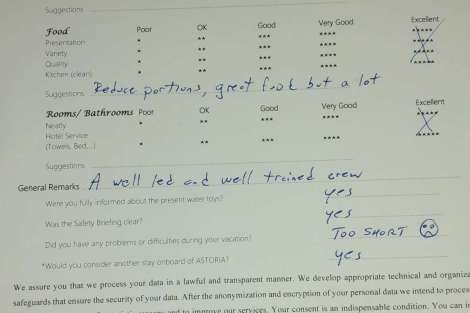 Suggestions
Food Poor OK Good Very Good Excellent
Presentation * ** *** **** *****
Variety * ** *** **** *****
Quality * ** *** **** *****
Kitchen (clean) * ** *** **** *****
Suggestions Reduce portions, great food but a lot
Rooms/ Bathrooms Poor OK Good Very Good Excellent
Neatly * ** *** **** *****
Hotel Service
(Towels, Bed,...) * ** *** **** *****
Suggestions
General Remarks A well led and well trained crew
Were you fully informed about the present water toys? yes
Was the Safety Briefing clear? yes
Did you have any problems or difficulties during your vacation? TOO SHORT
*Would you consider another stay onboard of ASTORIA? yes
We assure you that we process your data in a lawful and transparent manner. We develop appropriate technical and organiza
safeguards that ensure the security of your data. After the anonymization and encryption of your personal data we intend to process
and to improve our services. Your consent is an indispensable condition. You can